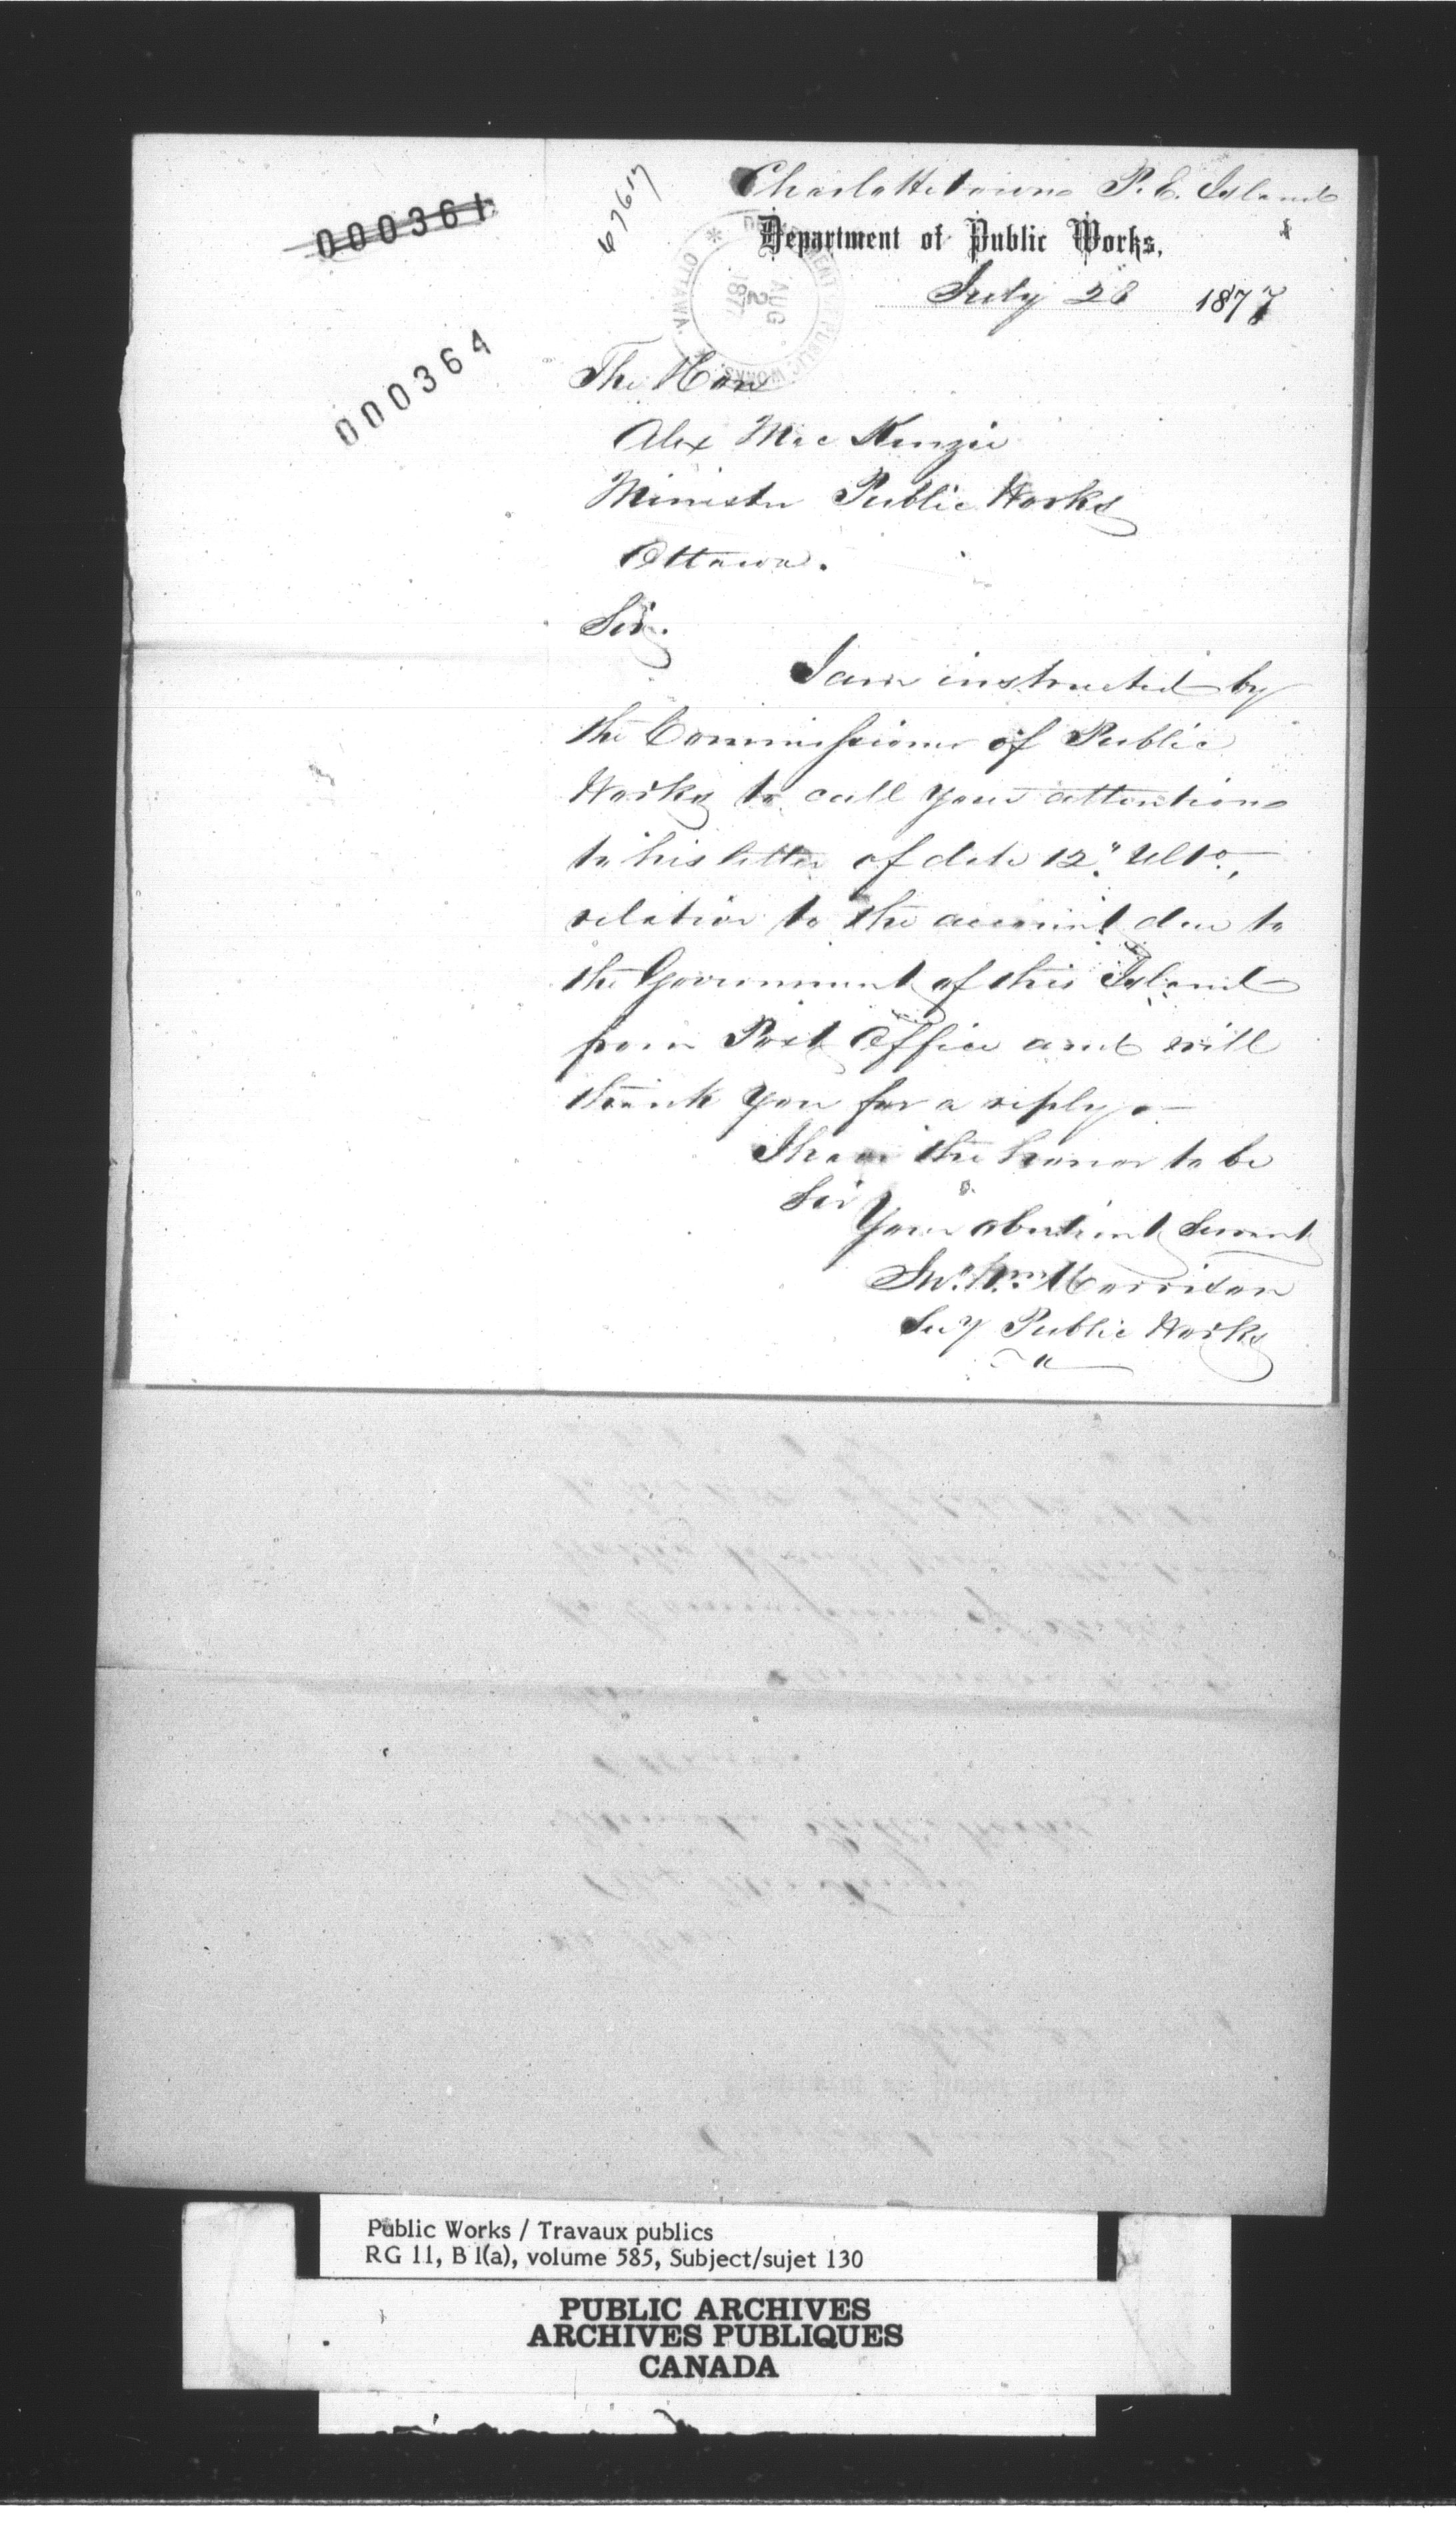 000361
000364
6767
Charlottetown P. E. Island
Department of Public Works,
July 28 1877
DEPARTMENT OF PUBLIC WORKS * OTTAWA *
AUG 2 1877
The Hon
Alex MacKenzie
Minister Public Works
Ottawa.
Sir.
I am instructed by
the Commissioner of Public
Works to call your attention
to his letter of date 12" Ulto.,
relative to the account due to
the Government of this Island
from Post Office and will
thank you for a reply.—
I have the honor to be
Sir
Your obedient Servant
Jno. Wm. Morrison
Secy Public Works
Public Works / Travaux publics
RG 11, B 1(a), volume 585, Subject/sujet 130
PUBLIC ARCHIVES
ARCHIVES PUBLIQUES
CANADA